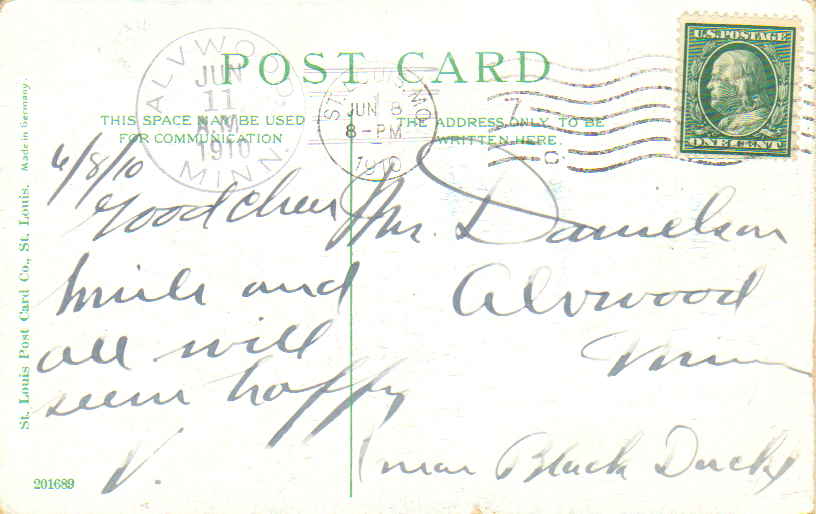 POST CARD
THIS SPACE MAY BE USED
FOR COMMUNICATION
THE ADDRESS ONLY TO BE
WRITTEN HERE
U.S. POSTAGE
ONE CENT
ALVWOOD
JUN
11
A.M.
1910
MINN.
ST. LOUIS, MO
1
JUN 8
8-PM
1910
7
C
6/8/10
Good cheer
smile and
all will
seem happy
V.
Mr. Danielson
Alvwood
Minn
(near Black Duck)
St. Louis Post Card Co., St. Louis. Made in Germany.
201689